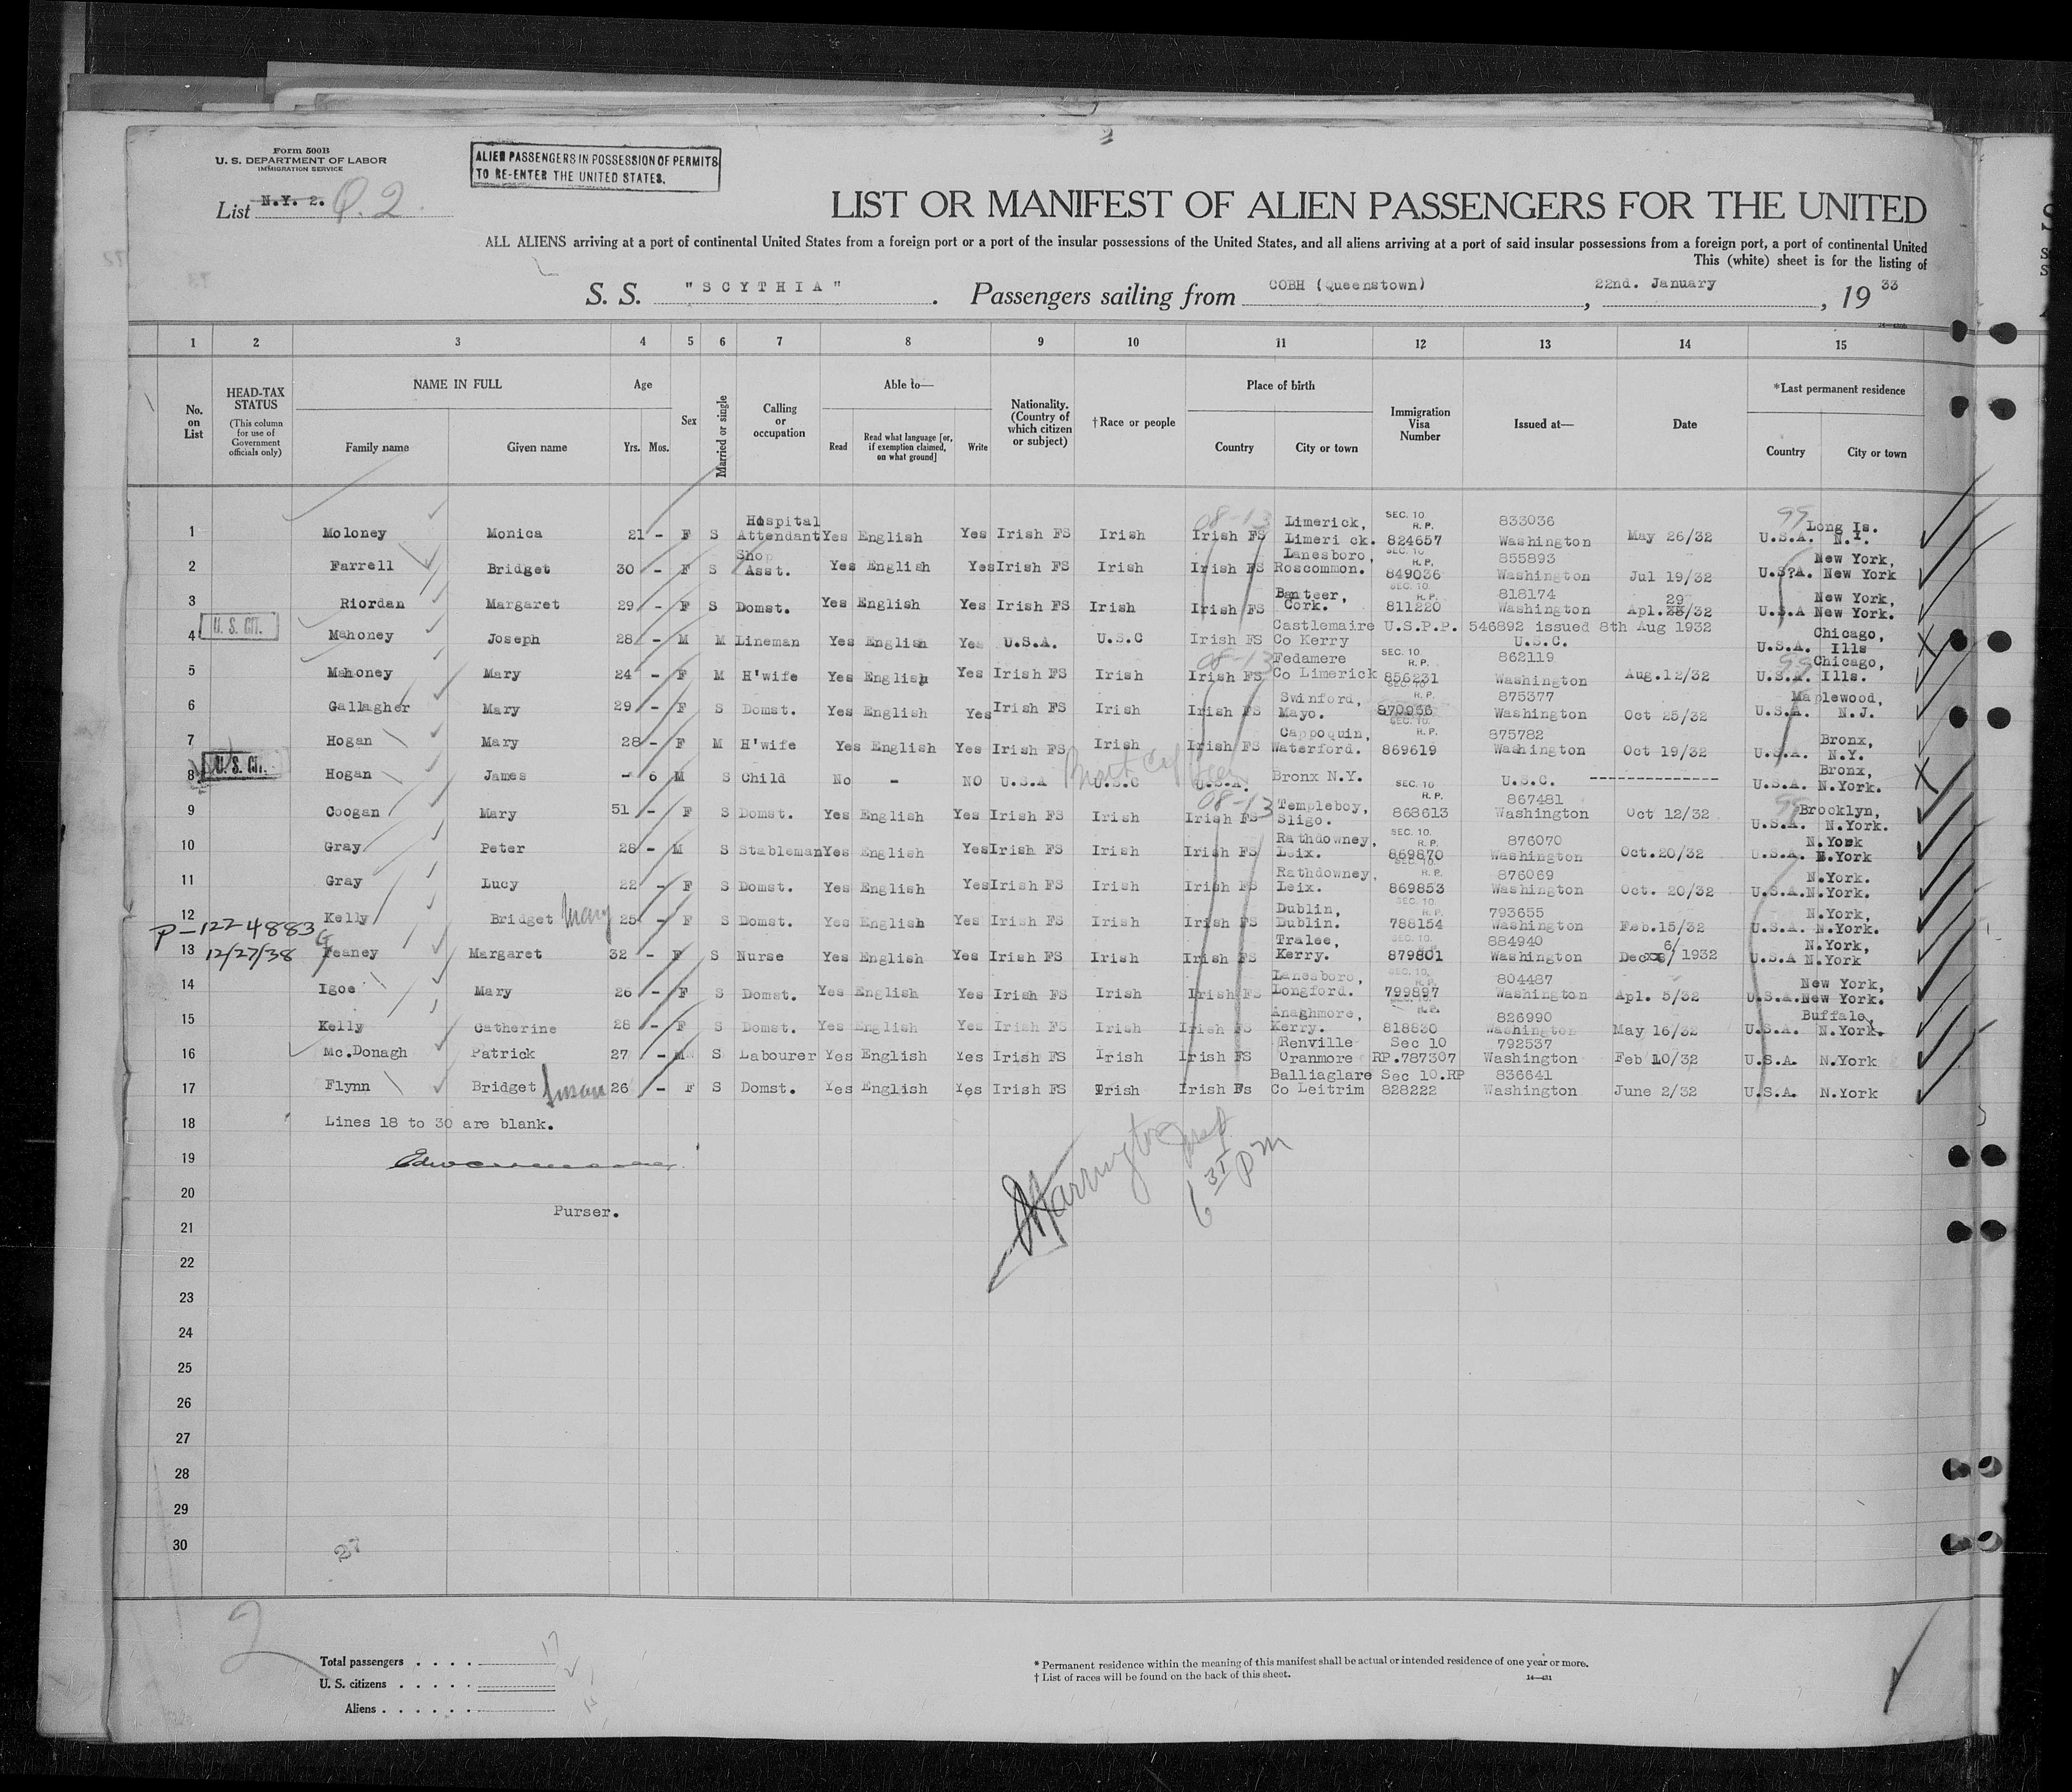 Form 500B
U. S. DEPARTMENT OF LABOR
IMMIGRATION SERVICE
ALIEN PASSENGERS IN POSSESSION OF PERMITS
TO RE-ENTER THE UNITED STATES.
List N.Y. 2. Q.2
LIST OR MANIFEST OF ALIEN PASSENGERS FOR THE UNITED
ALL ALIENS arriving at a port of continental United States from a foreign port or a port of the insular possessions of the United States, and all aliens arriving at a port of said insular possessions from a foreign port, a port of continental United
This (white) sheet is for the listing of
S. S. "SCYTHIA". Passengers sailing from COBH (Queenstown), 22nd. January, 19 33
1 2 3 4 5 6 7 8 9 10 11 12 13 14 15
No. on List
HEAD-TAX STATUS
(This column for use of Government officials only)
NAME IN FULL
Family name Given name
Age
Yrs. Mos.
Sex
Married or single
Calling or occupation
Able to—
Read
Read what language [or, if exemption claimed, on what ground]
Write
Nationality. (Country of which citizen or subject)
†Race or people
Place of birth
Country City or town
Immigration Visa Number
Issued at—
Date
*Last permanent residence
Country City or town
1 Moloney Monica 21 - F S Hospital Attendant Yes English Yes Irish FS Irish 08-13 Irish FS Limerick, Limeri ck. SEC. 10. R. P. 824657 833036 Washington May 26/32 99 U.S.A. Long Is. N.Y.
2 Farrell Bridget 30 - F S Shop Asst. Yes English Yes Irish FS Irish Irish FS Lanesboro, Roscommon. SEC. 10 R. P. 849036 855893 Washington Jul 19/32 U.S?A. New York, New York
3 Riordan Margaret 29 - F S Domst. Yes English Yes Irish FS Irish Irish FS Banteer, Cork. SEC. 10. R. P. 811220 818174 Washington Apl. 29/32 U.S.A New York, New York.
U. S. CIT.
4 Mahoney Joseph 28 - M M Lineman Yes English Yes U.S.A. U.S.C Irish FS Castlemaire Co Kerry U.S.P.P. 546892 issued 8th Aug 1932 U.S.C. U.S.A. Chicago, Ills
5 Mahoney Mary 24 - F M H'wife Yes English Yes Irish FS Irish 08-13 Irish FS Fedamere Co Limerick SEC. 10. R. P. 856231 862119 Washington Aug.12/32 99 U.S.A. Chicago, Ills.
6 Gallagher Mary 29 - F S Domst. Yes English Yes Irish FS Irish Irish FS Swinford, Mayo. SEC. 10. R. P. 870966 875377 Washington Oct 25/32 U.S.A. Maplewood, N.J.
7 Hogan Mary 28 - F M H'wife Yes English Yes Irish FS Irish Irish FS Cappoquin, Waterford. SEC. 10. R. P. 869619 875782 Washington Oct 19/32 U.S.A. Bronx, N.Y.
U. S. CIT.
8 Hogan James - 6 M S Child No - NO U.S.A U.S.C U.S.A. Bronx N.Y. U.S.C. -------------- U.S.A. Bronx, N.York.
9 Coogan Mary 51 - F S Domst. Yes English Yes Irish FS Irish 08-13 Irish FS Templeboy, Sligo. SEC. 10 R. P. 868613 867481 Washington Oct 12/32 99 U.S.A. Brooklyn, N.York.
10 Gray Peter 28 - M S Stableman Yes English Yes Irish FS Irish Irish FS Rathdowney, Leix. SEC. 10. R. P. 869870 876070 Washington Oct.20/32 U.S.A. N.York N.York
11 Gray Lucy 22 - F S Domst. Yes English Yes Irish FS Irish Irish FS Rathdowney, Leix. SEC. 10. R. P. 869853 876069 Washington Oct. 20/32 U.S.A. N.York. N.York.
12 Kelly Bridget Mary 25 - F S Domst. Yes English Yes Irish FS Irish Irish FS Dublin, Dublin. SEC. 10. R. P. 788154 793655 Washington Feb.15/32 U.S.A. N.York, N.York.
P-122 4883
12/27/38
13 G Feaney Margaret 32 - F S Nurse Yes English Yes Irish FS Irish Irish FS Tralee, Kerry. SEC. 10. R. P. 879801 884940 Washington Dec 6/ 1932 U.S.A N.York, N.York
14 Igoe Mary 26 - F S Domst. Yes English Yes Irish FS Irish Irish FS Lanesboro, Longford. SEC. 10. R. P. 799897 804487 Washington Apl. 5/32 U.S.A. New York, New York.
15 Kelly Catherine 28 - F S Domst. Yes English Yes Irish FS Irish Irish FS Anaghmore, Kerry. SEC. 10. R. P. 818830 826990 Washington May 16/32 U.S.A. Buffalo, N.York.
16 Mc.Donagh Patrick 27 - M S Labourer Yes English Yes Irish FS Irish Irish FS Renville Oranmore Sec 10 RP.787307 792537 Washington Feb 10/32 U.S.A. N.York
17 Flynn Bridget Susan 26 - F S Domst. Yes English Yes Irish FS Irish Irish Fs Balliaglare Co Leitrim Sec 10.RP 828222 836641 Washington June 2/32 U.S.A. N.York
18 Lines 18 to 30 are blank.
19
20
Purser.
21
22
23
24
25
26
27
28
29
30
Harrington Insp
6 31 PM
27
2
Total passengers . . . . 17
U. S. citizens . . . . .
Aliens . . . . . .
* Permanent residence within the meaning of this manifest shall be actual or intended residence of one year or more.
† List of races will be found on the back of this sheet.